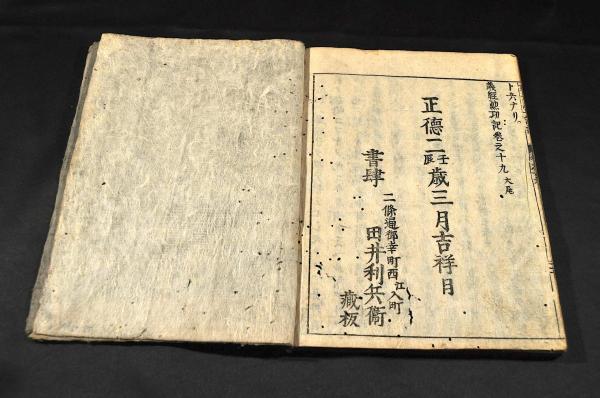 ト云ナリ
義経勲功記巻之十九 大尾
正徳二壬辰歳三月吉祥日
書肆
二條通御幸町西江入町
田井利兵衛
蔵板